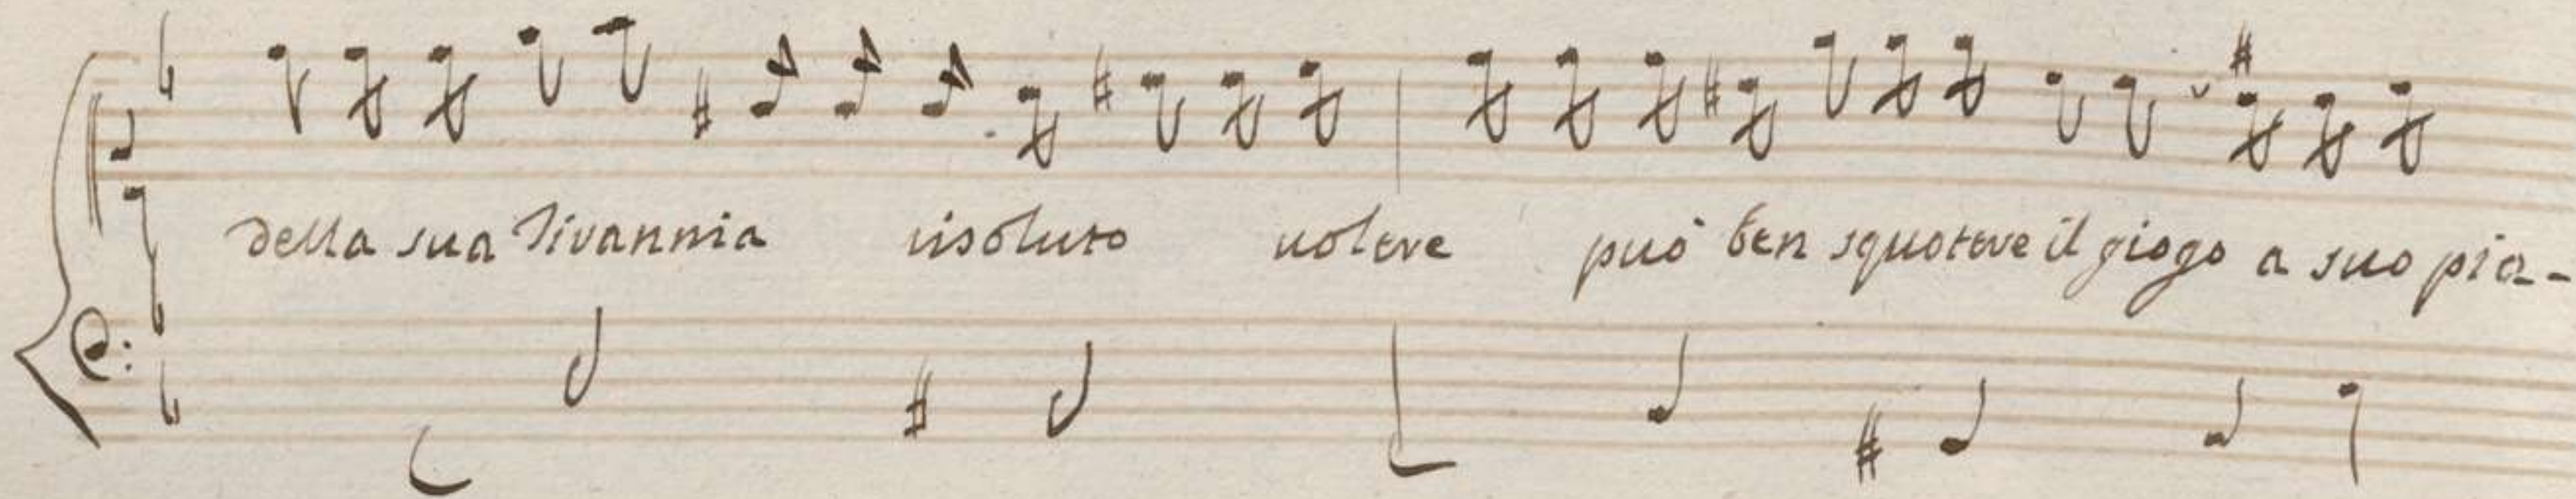 della sua Tirannia risoluto uolere può ben squotere il giogo a suo pia-